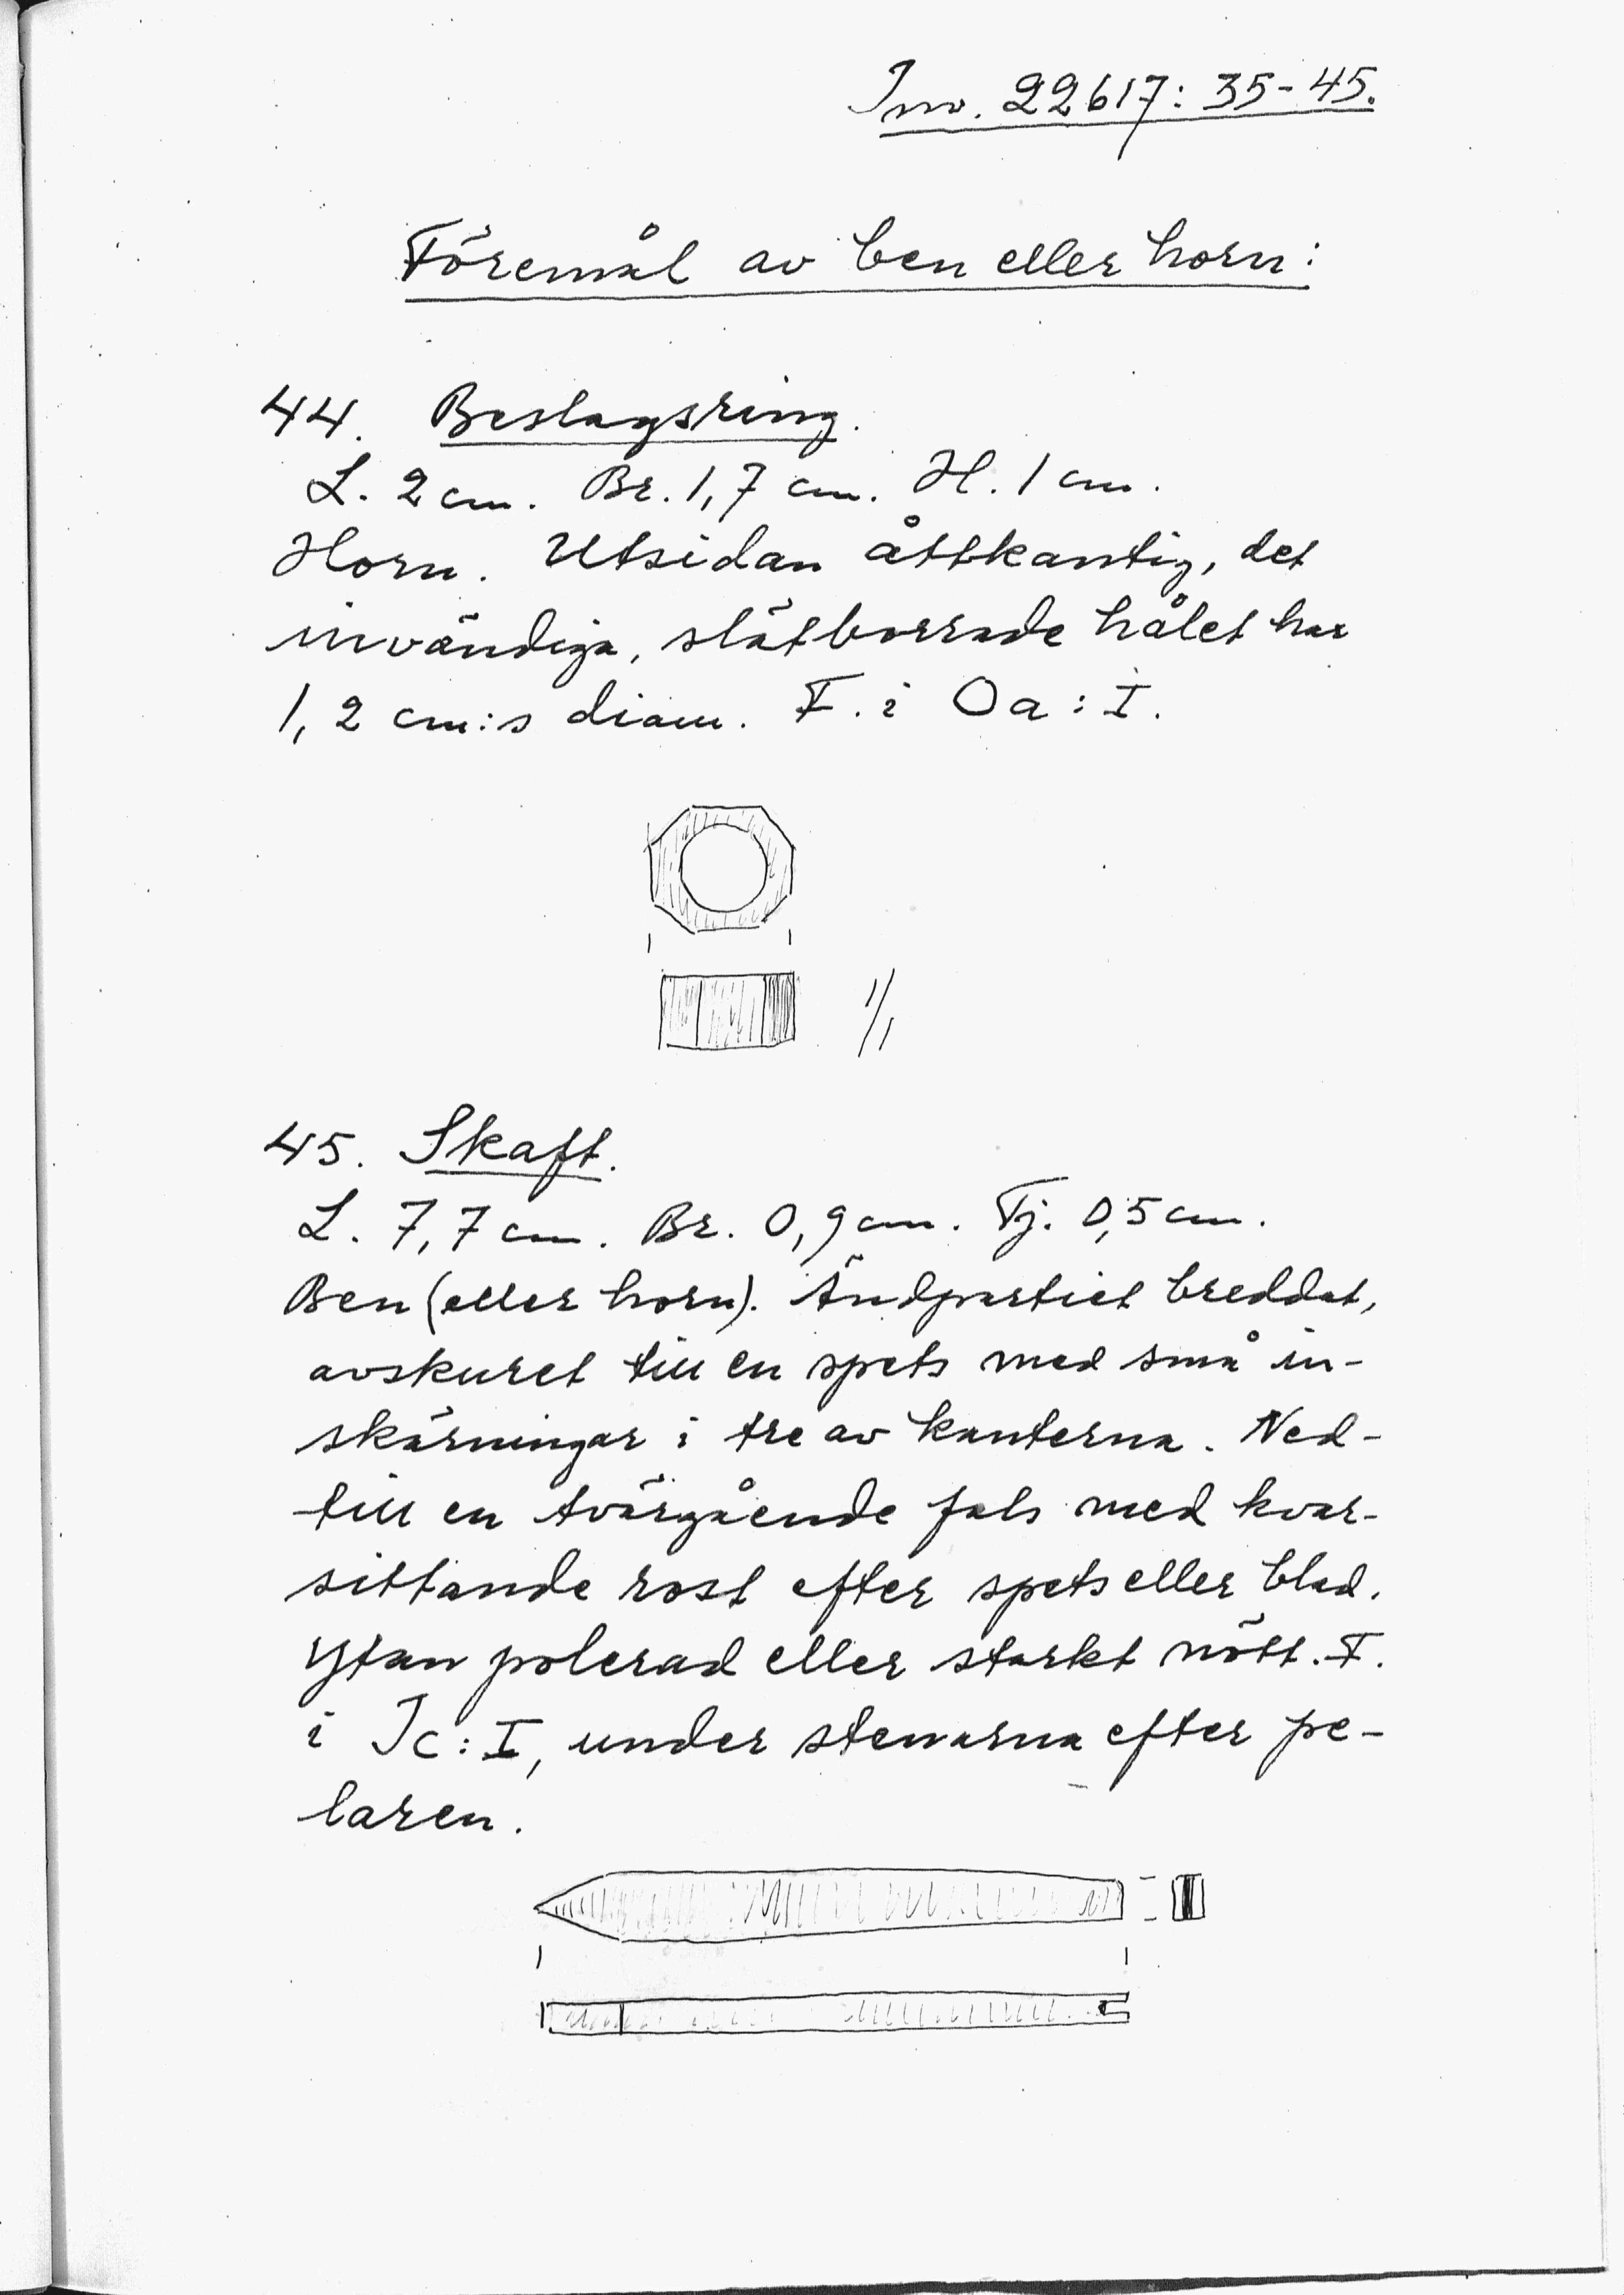 Inv. 22617: 35-45.
Föremål av ben eller horn:
44. Beslagsring.
L. 2 cm. Br. 1,7 cm. H. 1 cm.
Horn. Utsidan åttkantig, det
invändiga, slätborrade hålet har
1,2 cm:s diam. F. i Oa: I.
1/1
45. Skaft.
L. 7,7 cm. Br. 0,9 cm. Tj. 0,5 cm.
Ben (eller horn). Ändpartiet breddat,
avskuret till en spets med små in-
skärningar i tre av kanterna. Ned-
till en tvärgående fals med kvar-
sittande rost efter spets eller blad.
Ytan polerad eller starkt nött. F.
i Jc: I, under stenarna efter pe-
laren.